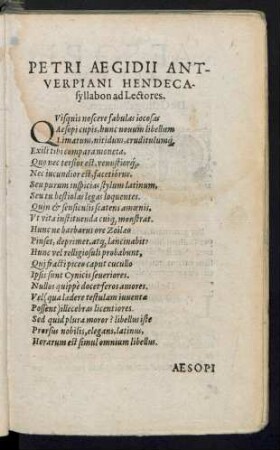 PETRI AEGIDII ANT-
VERPIANI HENDECA-
syllabon ad Lectores.
QVisquis noscere fabulas iocosas
Aesopi cupis, hunc nouum libellum
Limatum, nitidum, eruditulumq́;
Exili tibi compara moneta.
Quo nec tersior est, venustiorq́;,
Nec iucundior est, facetiorue.
Seu purum inspicias stylum latinum,
Seu tu bestiolas legas loquentes.
Quin & sensiculis scatens amœnis,
Vt vita instituenda cuiq; monstrat.
Hunc ne barbarus ore Zoileo
Pinset, deprimet, atq; lancinabit:
Hunc vel relligiosuli probabunt,
Qui fracti piceo caput cucullo
Ipsis sunt Cynicis seueriores.
Nullos quippè docet feros amores.
Vel quæ lædere testulam iuuentæ
Possent illecebras licentiores.
Sed quid plura moror? libellus iste
Prorsus nobilis, elegans, latinus,
Horarum est simul omnium libellus.
AESOPI